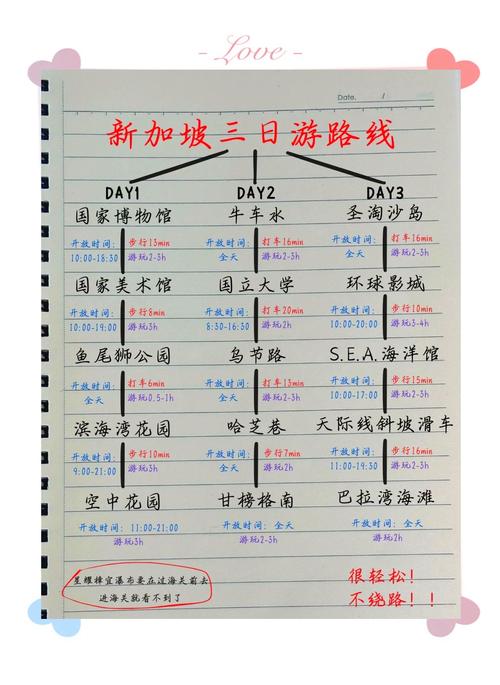 - Love -
Date. /
新加坡三日游路线
DAY1 DAY2 DAY3
国家博物馆 牛车水 圣淘沙岛
开放时间: 步行13min 开放时间: 打车16min 开放时间: 打车16min
10:00-18:30 游玩2-3h 全天 游玩2-3h 全天 游玩2-3h
国家美术馆 国立大学 环球影城
开放时间: 步行8min 开放时间: 打车20min 开放时间: 步行10min
10:00-19:00 游玩3h 8:30-16:30 游玩2h 10:00-20:00 游玩3-4h
鱼尾狮公园 乌节路 S.E.A.海洋馆
开放时间: 打车6min 开放时间: 打车13min 开放时间: 步行15min
全天 游玩0.5-1h 全天 游玩2-3h 10:00-17:00 游玩2-3h
滨海湾花园 哈芝巷 天际线斜坡滑车
开放时间: 步行10min 开放时间: 步行7min 开放时间: 步行16min
9:00-21:00 游玩3h 全天 游玩2h 11:00-19:30 游玩2-3h
空中花园 甘榜格南 巴拉湾海滩
开放时间: 11:00-21:00 开放时间: 全天 开放时间: 全天
游玩3h 游玩2-3h 游玩2-3h
星耀樟宜瀑布要在过海关前去
进海关就看不到了
很轻松!
不绕路!!